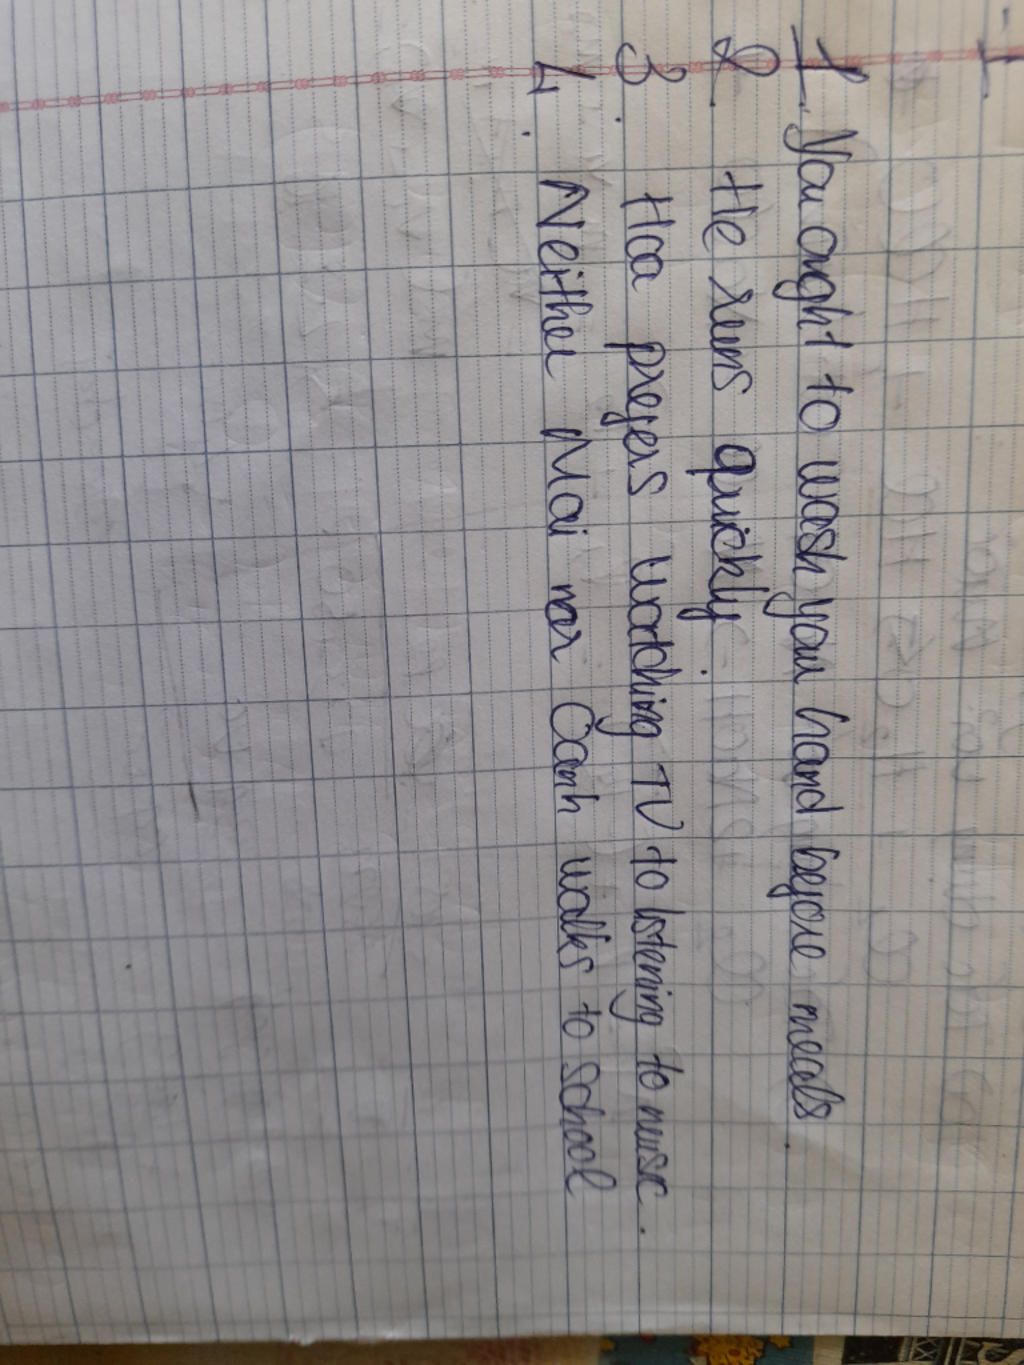 I
1. You ought to wash your hand before meals.
2. He runs quickly.
3. Hoa prefers watching TV to listening to music.
4. Neither Mai nor Oanh walks to school